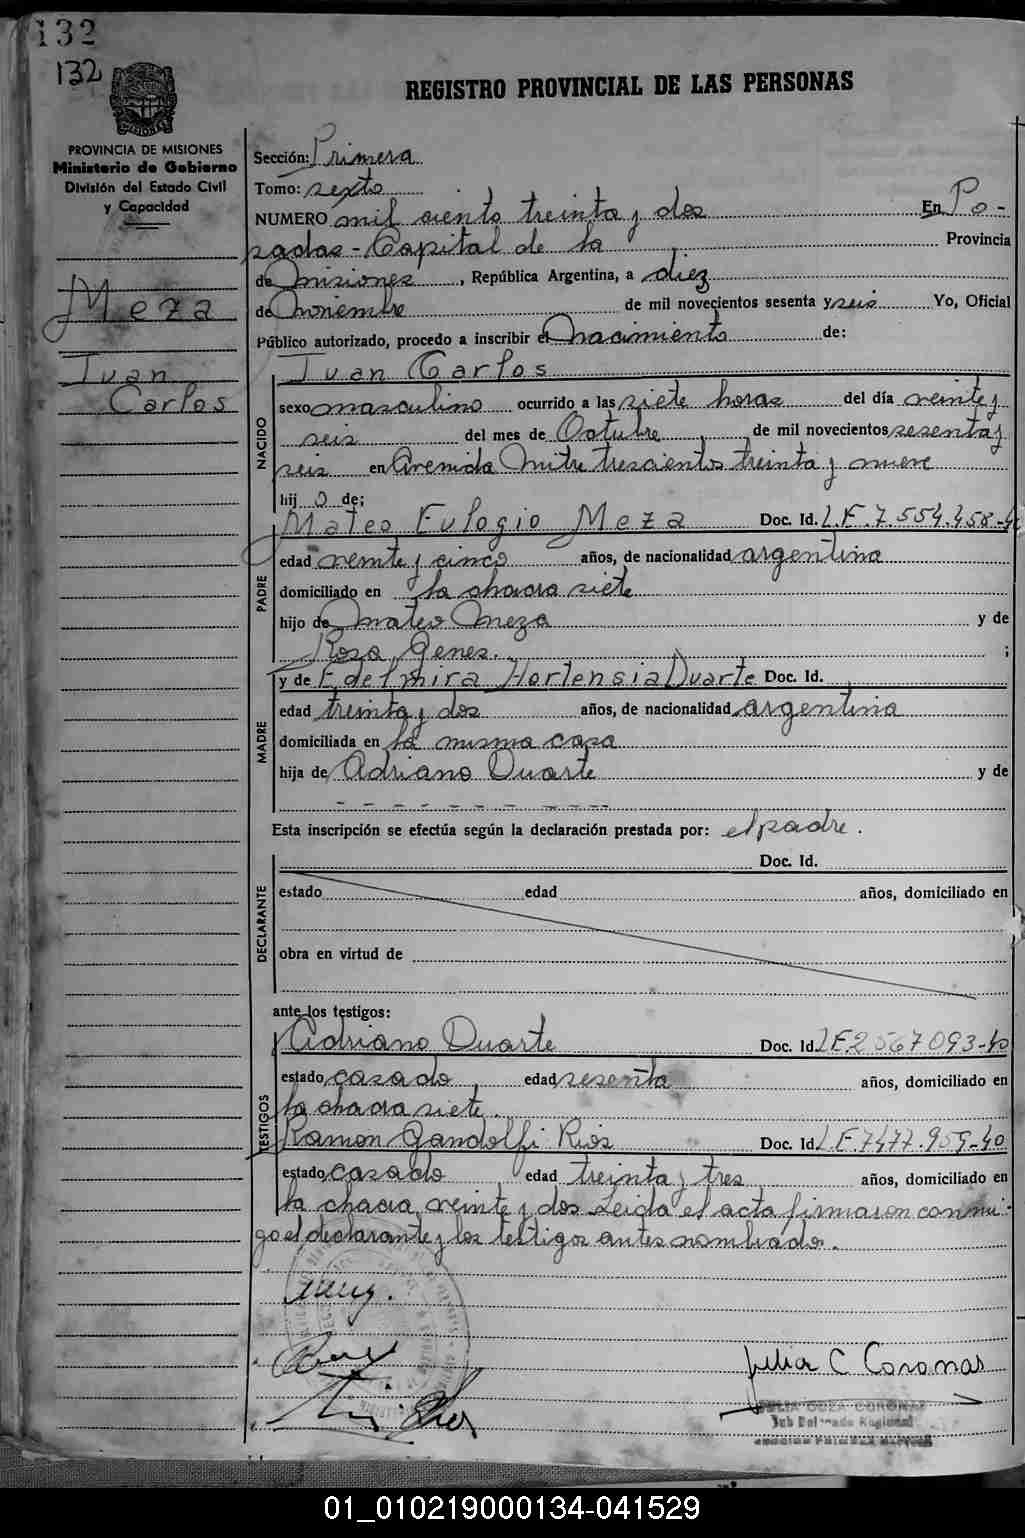 132
132
REGISTRO PROVINCIAL DE LAS PERSONAS
PROVINCIA DE MISIONES
Ministerio de Gobierno
División del Estado Civil
y Capacidad
Meza
Juan
Carlos
Sección: Primera
Tomo: sexto
NUMERO mil ciento treinta y dos En Po-
sadas - Capital de la Provincia
de Misiones, República Argentina, a diez
de Noviembre de mil novecientos sesenta y seis Yo, Oficial
Público autorizado, procedo a inscribir el Nacimiento de:
NACIDO
Juan Carlos
sexo masculino ocurrido a las siete horas del día veinte y
seis del mes de Octubre de mil novecientos sesenta y
seis en Avenida Mitre trescientos treinta y nueve
hij o de;
PADRE
Mateo Eulogio Meza Doc. Id. L.E. 7.554.458-
edad veinte y cinco años, de nacionalidad argentina
domiciliado en la chacra siete
hijo de Mateo Meza y de
Rosa Genes. ;
MADRE
y de Edelmira Hortensia Duarte Doc. Id.
edad treinta y dos años, de nacionalidad argentina
domiciliada en la misma casa
hija de Adriano Duarte y de
- - - - - - - - - -
Esta inscripción se efectúa según la declaración prestada por: el padre.
DECLARANTE
Doc. Id.
estado edad años, domiciliado en
obra en virtud de
ante los testigos:
TESTIGOS
Adriano Duarte Doc. Id. L E 2567093-40
estado casado edad sesenta años, domiciliado en
la chacra siete.
Ramon Gandolfi Rios Doc. Id. L.E. 7477.959-40
estado casado edad treinta y tres años, domiciliado en
la chacra veinte y dos. Leida el acta firmaron conmi-
go el declarante y los testigos antes nombrado.
Julia C Coronas
JULIA CORONAS
Sub Delegado Regional
01_010219000134-041529